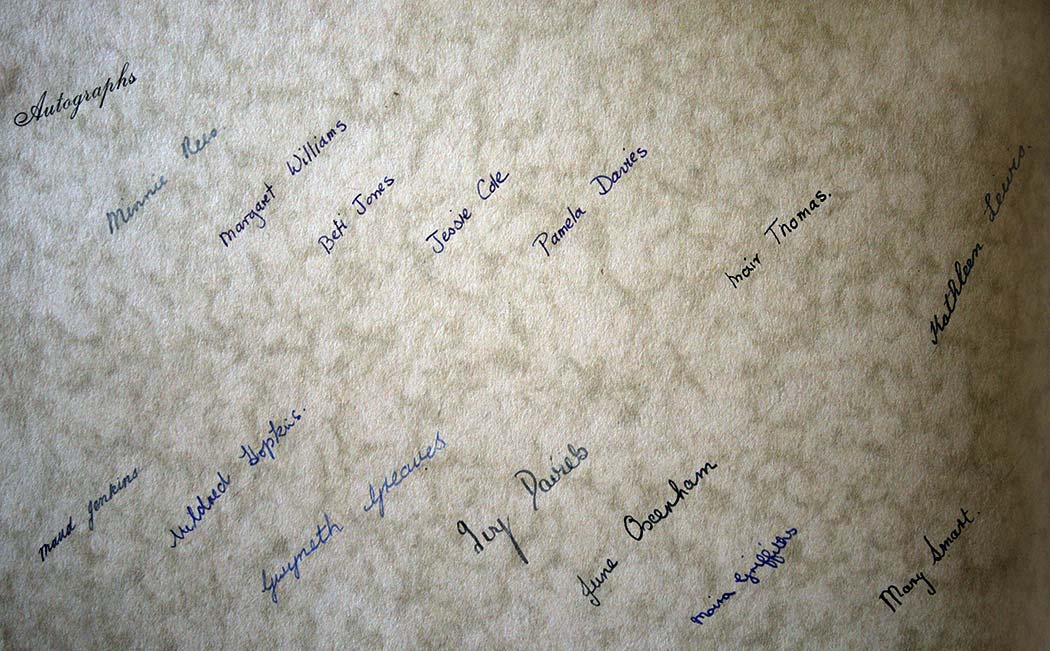 Autographs
Minnie Rees.
Margaret Williams
Beti Jones
Jessie Cole
Pamela Davies
Mair Thomas.
Kathleen Lewis.
Maud Jenkins
Mildred Hopkins.
Gwyneth Greaves
Ivy Davies
June
Moira Griffiths
Mary Smart.